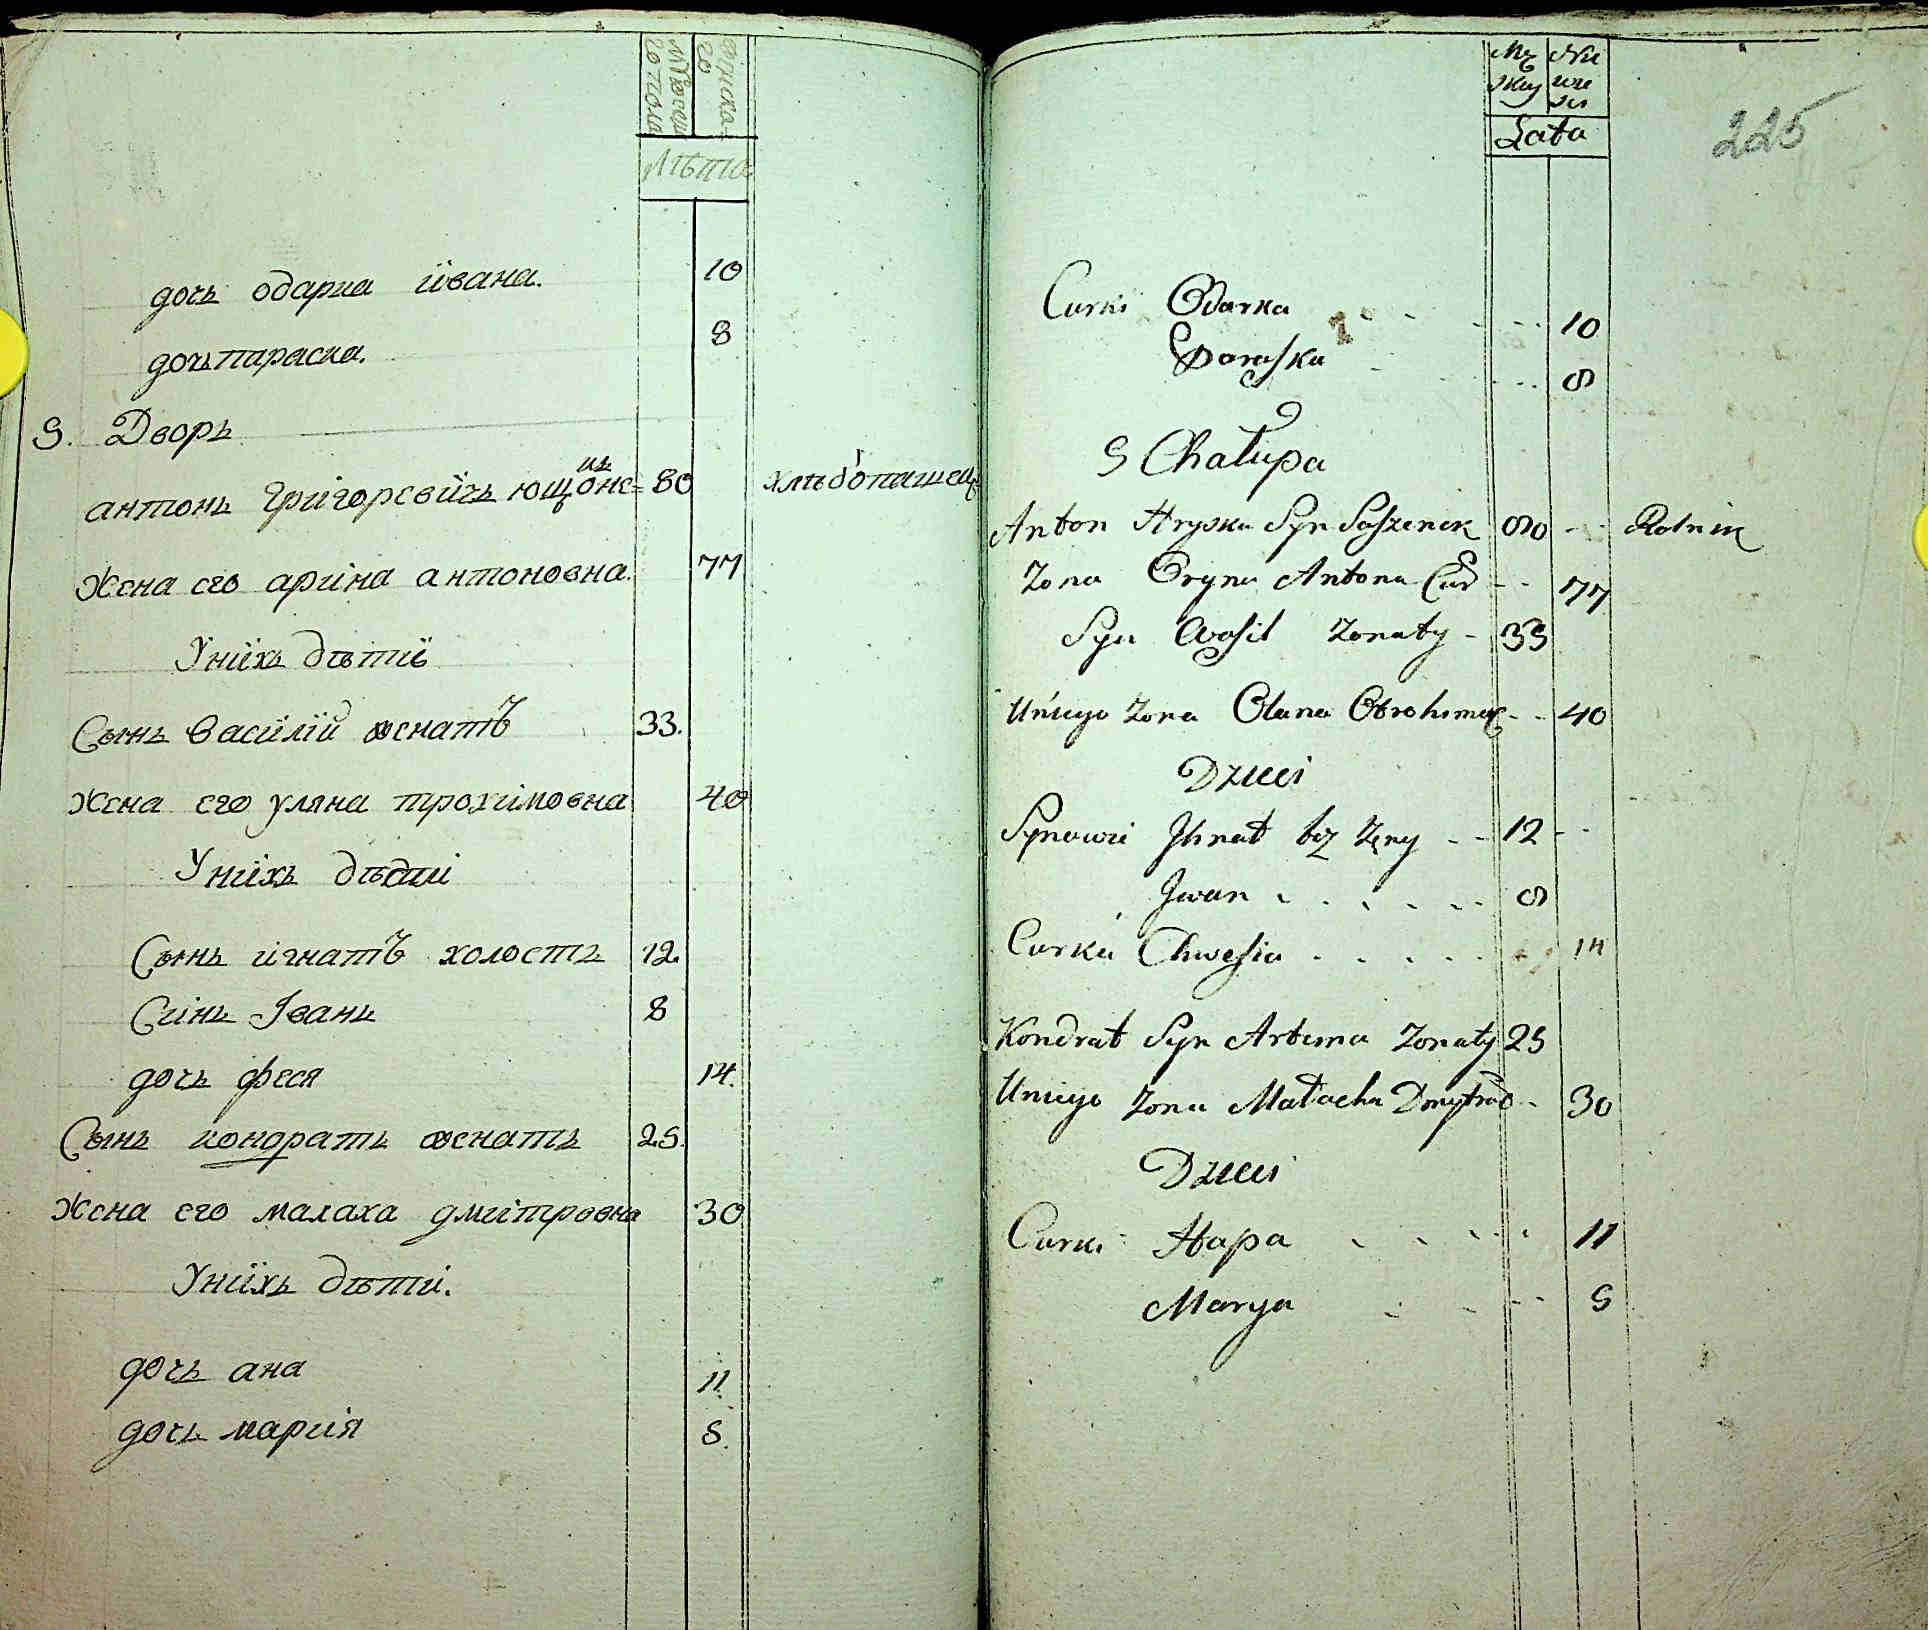 мужескаго пола
женска-го
Лѣта
дочь одарка ивана. 10
дочь параска. 8
5. Дворъ
антонъ григоревичь ющенкъ 80 хлѣбопашец
жена его арина антоновна. 77
Унихъ дѣти
Сынъ василій женатъ 33.
жена его уляна трохимовна 40
Унихъ дѣти
Сынъ игнатъ холостъ 12.
Синъ Іванъ 8
дочь феся 14.
Сынъ кондратъ женатъ 25.
жена его малаха дмитровна 30
Унихъ дѣти.
дочь ана 11.
дочь мария 5.
Mę Nie
skiy wie
Lata
225
Curki Odarka 10
Paraska 8
5 Chałupa
Anton Hryska Syn 80 Rolnik
Zona Oryna Antona Cur 77
Syn Wasil Zonaty - 33
Uniego Zona Olana 40
Dzieci
Synowie Ihnat bez Zeny - - 12 - -
Iwan 8
Curka Chwesia 14
Kondrat Syn Artema Zonaty 25
Uniego Zona Małacha Dmytra 30
Dzieci
Curki Hapa 11
Marya 5